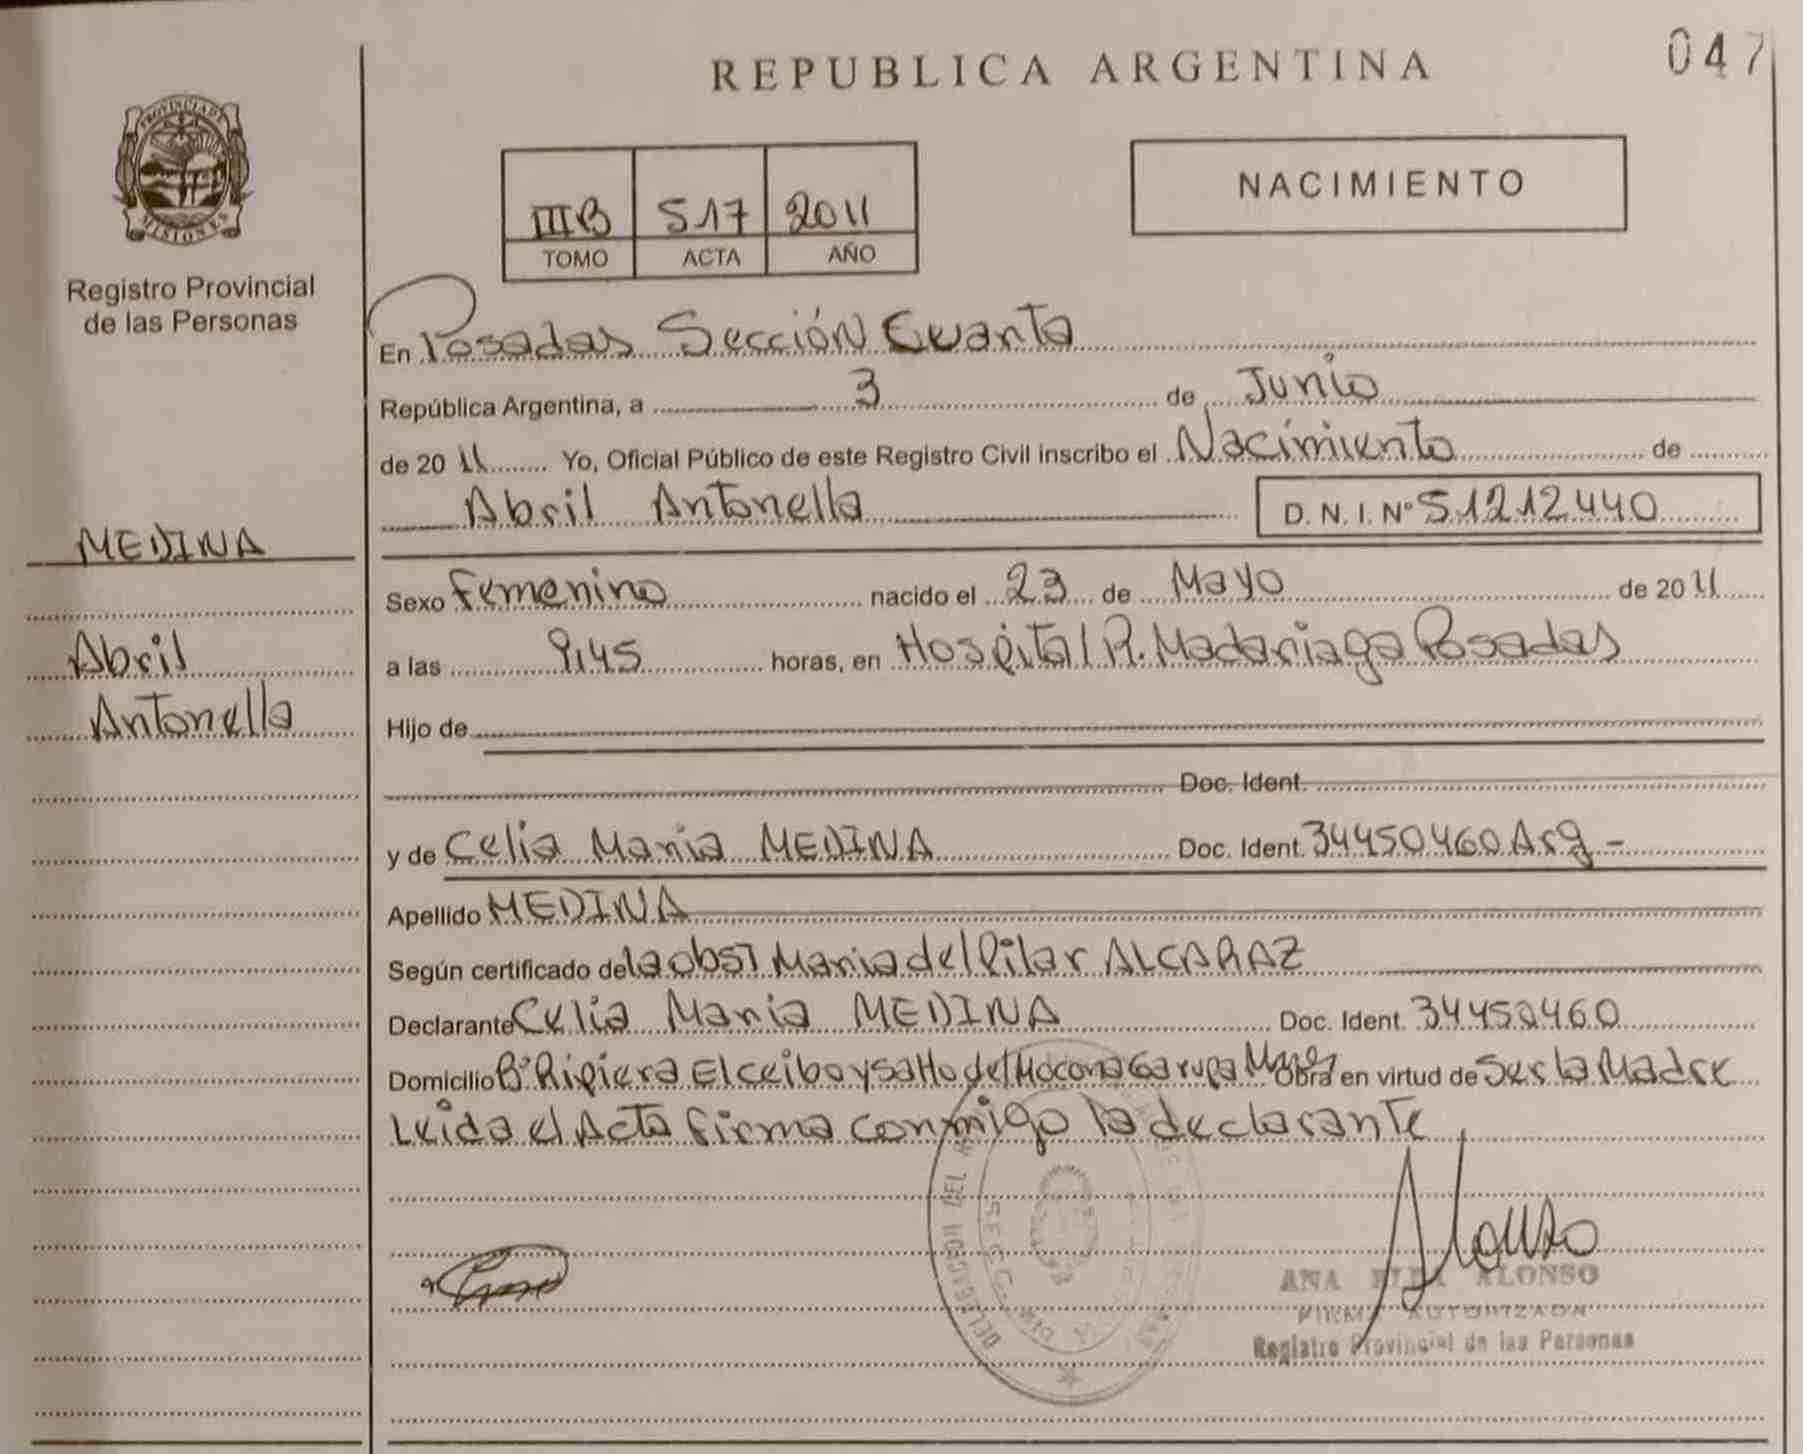 REPUBLICA ARGENTINA
047
PROVINCIA DE
MISIONES
Registro Provincial
de las Personas
IIIB 517 2011
TOMO ACTA AÑO
NACIMIENTO
En Posadas Sección Cuarta
República Argentina, a 3 de Junio
de 20 11 Yo, Oficial Público de este Registro Civil inscribo el Nacimiento de
Abril Antonella D. N. I. Nº 51212440
MEDINA
Abril
Antonella
Sexo Femenino nacido el 23 de Mayo de 20 11
a las 9,45 horas, en Hospital R. Madariaga Posadas
Hijo de
Doc. Ident.
y de Celia Maria MEDINA Doc. Ident. 34450460 Arg -
Apellido MEDINA
Según certificado de la obst Maria del Pilar ALCARAZ
Declarante Celia Maria MEDINA Doc. Ident. 34450460
Domicilio Bº Ripiera El ceibo y salto del Mocona Garupa Obra en virtud de Ser la Madre
Leida el Acta firma conmigo la declarante
DELEGACION DEL
SECC.
Alonso
ANA ALONSO
FIRMA AUTORIZADA
Registro Provincial de las Personas